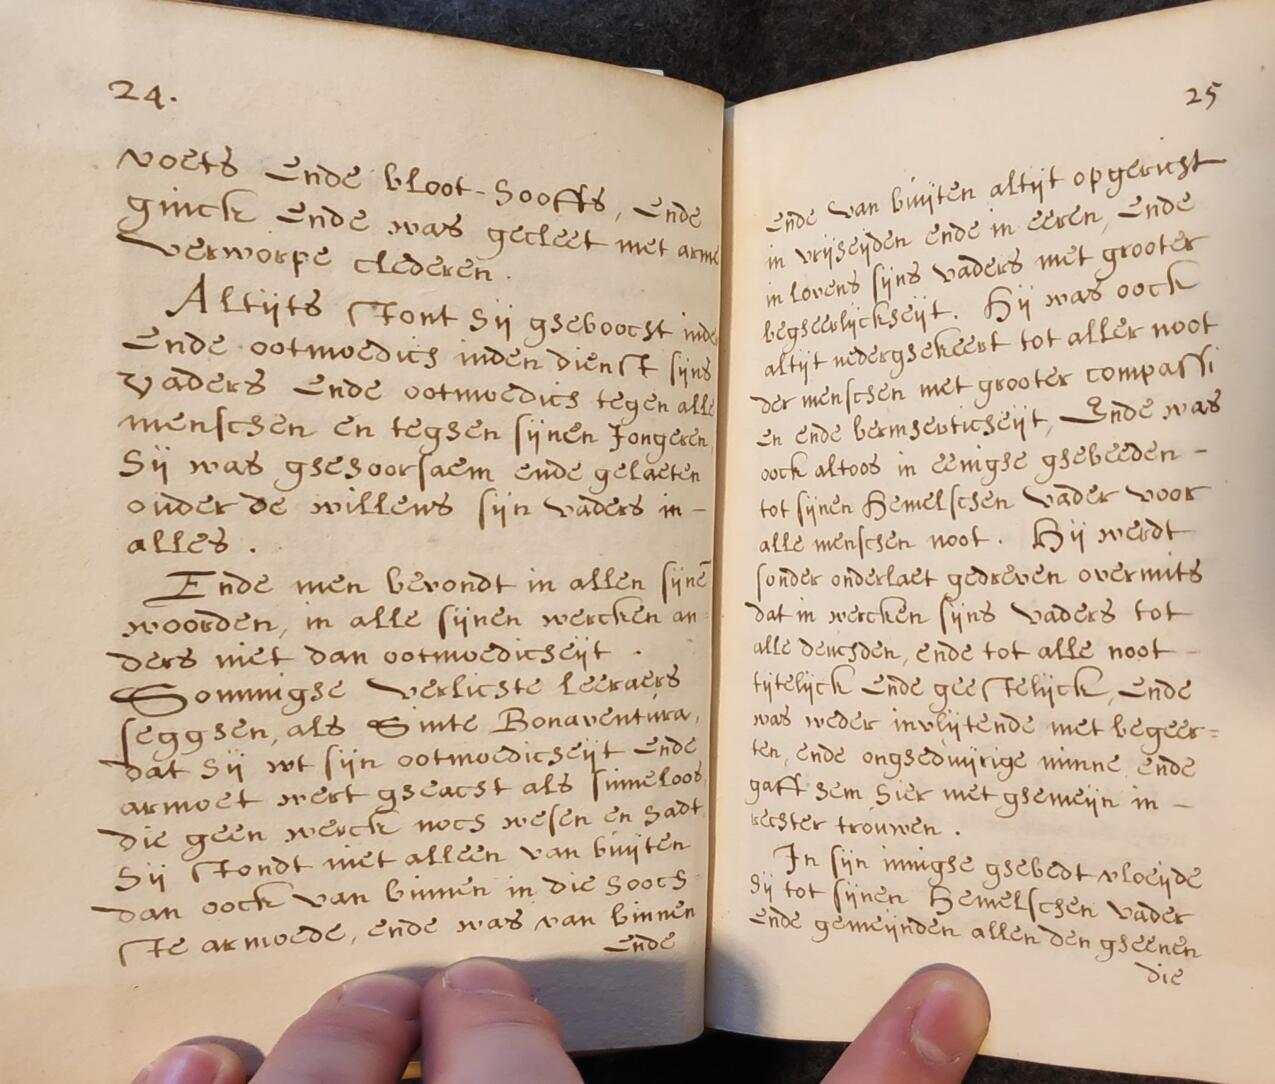 24.
voets Ende bloot-hooffts, Ende
ginck Ende was gecleet met arme
verworpe clederen.
Altijts stont hij gheboocht inde
Ende ootmoedich inden dienst sijns
Vaders Ende ootmoedich tegen alle
menschen en teghen sijnen Jongeren,
hij was ghehoorsaem ende gelaeten
onder de willens sijn vaders in -
alles.
Ende men bevondt in allen sijnē
woorden, in alle sijnen wercken an-
ders niet dan ootmoedicheijt.
Sommighe verlichte leeraers
segghen, als Sinte Bonaventura,
dat hij wt sijn ootmoedicheijt Ende
armoet wert gheacht als sinneloos
die geen werck noch wesen en hadt,
hij stondt niet alleen van buijten
dan oock van binnen in die hooch-
ste armoede, ende was van binnen
Ende
25
Ende van buijten altijt opgericht
in vrijheijden ende in eeren, Ende
in lovens sijns vaders met grooter
begheerlijckheijt. Hij was oock
altijt nederghekeert tot aller noot
der menschen met grooter compassi
en ende bermherticheijt, Ende was
oock altoos in eenighe ghebeeden -
tot sijnen Hemelschen vader voor
alle menschen noot. Hij werdt
sonder onderlaet gedreven overmits
dat in wercken sijns vaders tot
alle deuchden, ende tot alle noot -
tijtelijck Ende geestelijck, Ende
was weder invlijtende met begeer=
ten, ende onghedurige minne, ende
gaff hem hier met ghemeijn in -
rechter trouwen.
In sijn innighe ghebedt vloeijde
hij tot sijnen Hemelschen vader
Ende gemeijnden allen den gheenen
die